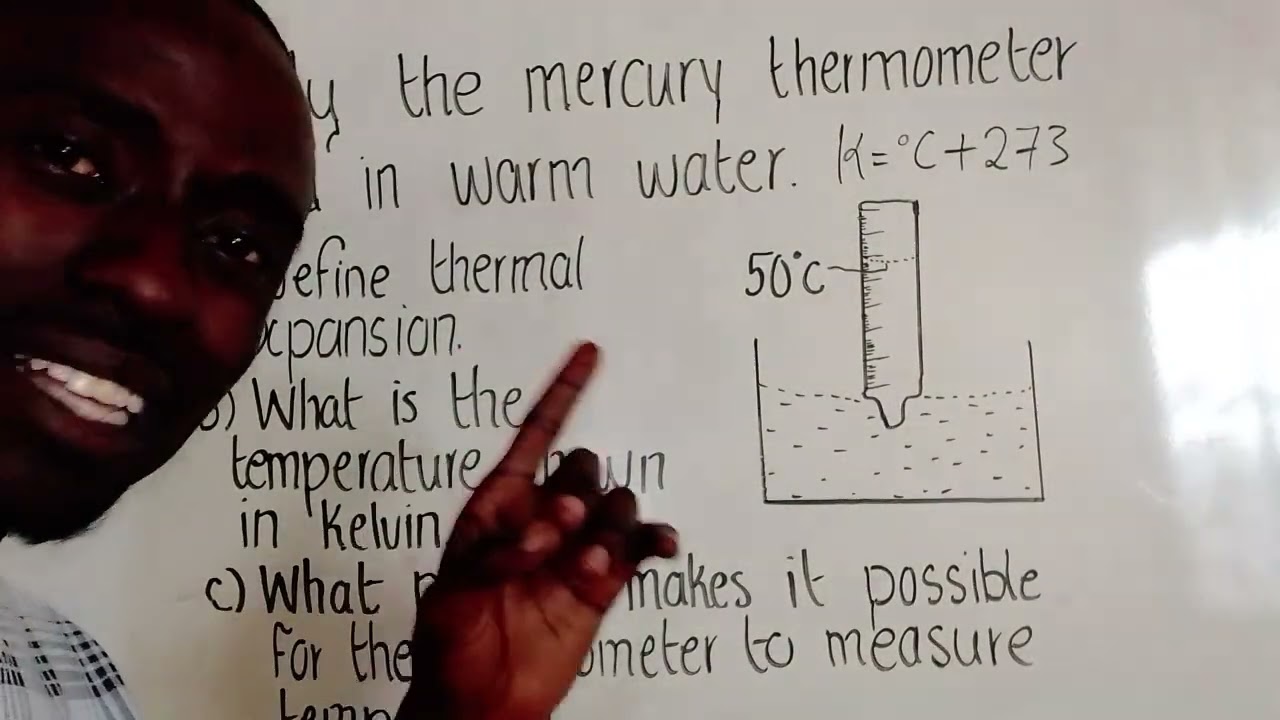 the mercury thermometer
in warm water. K=°C+273
50°C
efine thermal
xpansion.
b) What is the
temperature
in Kelvin
c) What makes it possible
for the ometer to measure
temp